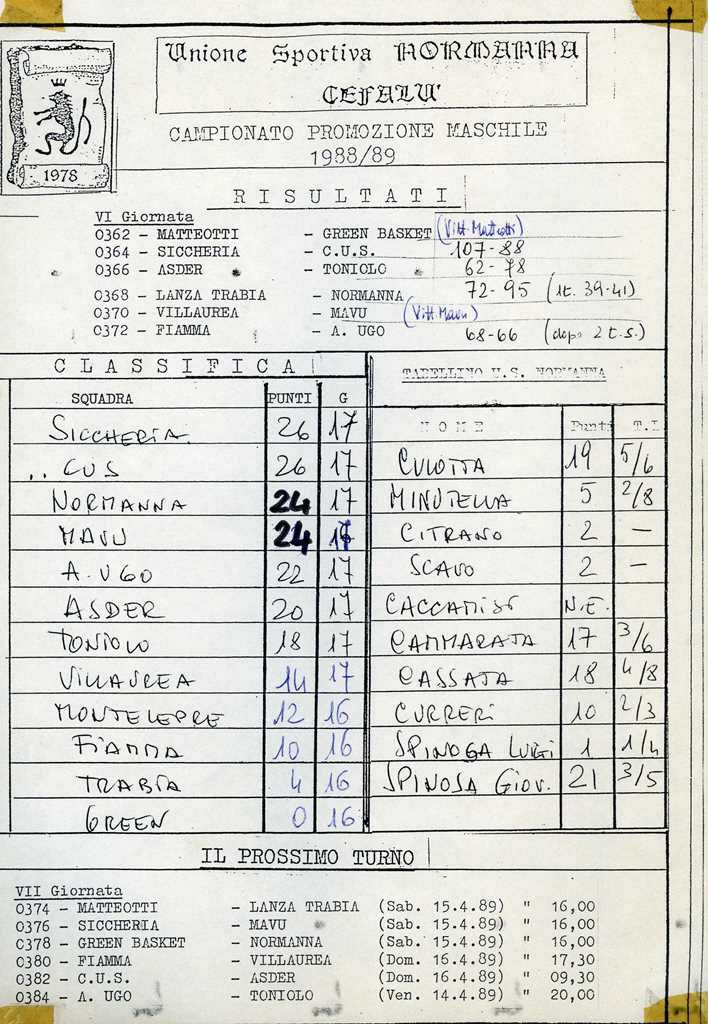 Unione Sportiva NORMANNA
CEFALU'
1978
CAMPIONATO PROMOZIONE MASCHILE
1988/89
RISULTATI
VI Giornata
0362 - MATTEOTTI - GREEN BASKET (Vitt. Matteotti)
0364 - SICCHERIA - C.U.S. 107-88
0366 - ASDER - TONIOLO 62-78
0368 - LANZA TRABIA - NORMANNA 72-95 (1t. 39-41)
0370 - VILLAUREA - MAVU (Vitt. Mavu)
0372 - FIAMMA - A. UGO 68-66 (dopo 2 t.s.)
CLASSIFICA
SQUADRA PUNTI G
SICCHERIA 26 17
CUS 26 17
NORMANNA 24 17
MAVU 24
A. UGO 22 17
ASDER 20 17
TONIOLO 18 17
VILLAUREA 14 17
MONTELEPRE 12 16
FIAMMA 10 16
TRABIA 4 16
GREEN 0 16
TABELLINO U.S. NORMANNA
NOME Punti T.L
CULOTTA 19 5/6
MINUTELLA 5 2/8
CITRANO 2 —
SCAVO 2 —
CACCAMISI N.E.
CAMMARATA 17 3/6
CASSATA 18 4/8
CURRERI 10 2/3
SPINOSA LUIGI 1 1/4
SPINOSA GIOV. 21 3/5
IL PROSSIMO TURNO
VII Giornata
0374 - MATTEOTTI - LANZA TRABIA (Sab. 15.4.89) " 16,00
0376 - SICCHERIA - MAVU (Sab. 15.4.89) " 16,00
0378 - GREEN BASKET - NORMANNA (Sab. 15.4.89) " 16,00
0380 - FIAMMA - VILLAUREA (Dom. 16.4.89) " 17,30
0382 - C.U.S. - ASDER (Dom. 16.4.89) " 09,30
0384 - A. UGO - TONIOLO (Ven. 14.4.89) " 20,00